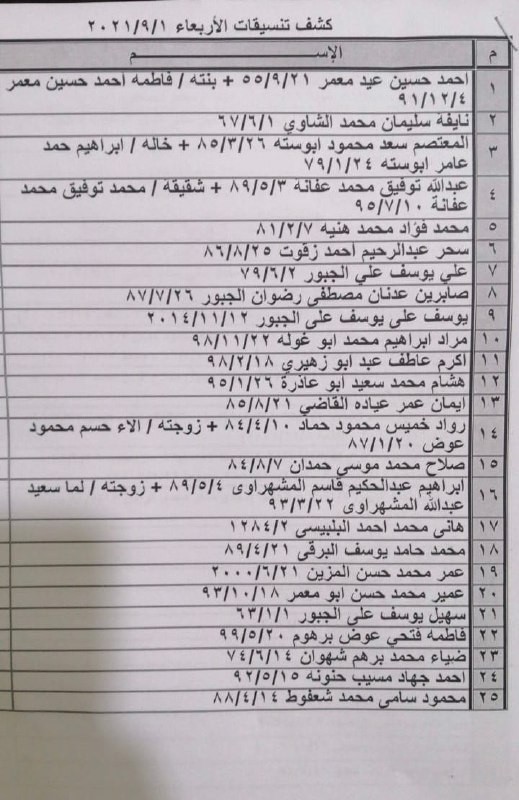 كشف تنسيقات الأربعاء ٢٠٢١/٩/١
م الإســـــــــم
١ احمد حسين عيد معمر ٥٥/٩/٢١ + بنته / فاطمه احمد حسين معمر
٩١/١٢/٤
٢ نايفة سليمان محمد الشاوي ٦٧/٦/١
٣ المعتصم سعد محمود ابوسته ٨٥/٣/٢٦ + خاله / ابراهيم حمد
عامر ابوسته ٧٩/١/٢٤
٤ عبدالله توفيق محمد عفانه ٨٩/٥/٣ + شقيقة / محمد توفيق محمد
عفانة ٩٥/٧/١٠
٥ محمد فؤاد محمد هنيه ٨١/٢/٧
٦ سحر عبدالرحيم احمد زقوت ٨٦/٨/٢٥
٧ علي يوسف علي الجبور ٧٩/٦/٢
٨ صابرين عدنان مصطفى رضوان الجبور ٨٧/٧/٢٦
٩ يوسف على يوسف على الجبور ٢٠١٤/١١/١٢
١٠ مراد ابراهيم محمد ابو غوله ٩٨/١١/٢٢
١١ اكرم عاطف عبد ابو زهيري ٩٨/٢/١٨
١٢ هشام محمد سعيد ابو عاذرة ٩٥/١/٢٦
١٣ ايمان عمر عياده القاضي ٨٥/٨/٢١
١٤ رواد خميس محمود حماد ٨٤/٤/١٠ + زوجته / الاء حسم محمود
عوض ٨٧/١/٢٠
١٥ صلاح محمد موسي حمدان ٨٤/٨/٧
١٦ ابراهيم عبدالحكيم قاسم المشهراوى ٨٩/٥/٤ + زوجته / لما سعيد
عبدالله المشهراوى ٩٣/٣/٢٢
١٧ هانى محمد احمد البلبيسى ١٢٨٤/٢
١٨ محمد حامد يوسف البرقي ٨٩/٤/٢١
١٩ عمر محمد حسن المزين ٢٠٠٠/٦/٢١
٢٠ عمير محمد حسن ابو معمر ٩٣/١٠/١٨
٢١ سهيل يوسف على الجبور ٦٣/١/١
٢٢ فاطمه فتحي عوض برهوم ٩٩/٥/٢٠
٢٣ ضياء محمد برهم شهوان ٧٤/٦/١٤
٢٤ احمد جهاد مسيب حنونه ٩٢/٥/١٥
٢٥ محمود سامى محمد شعفوط ٨٨/٤/١٤